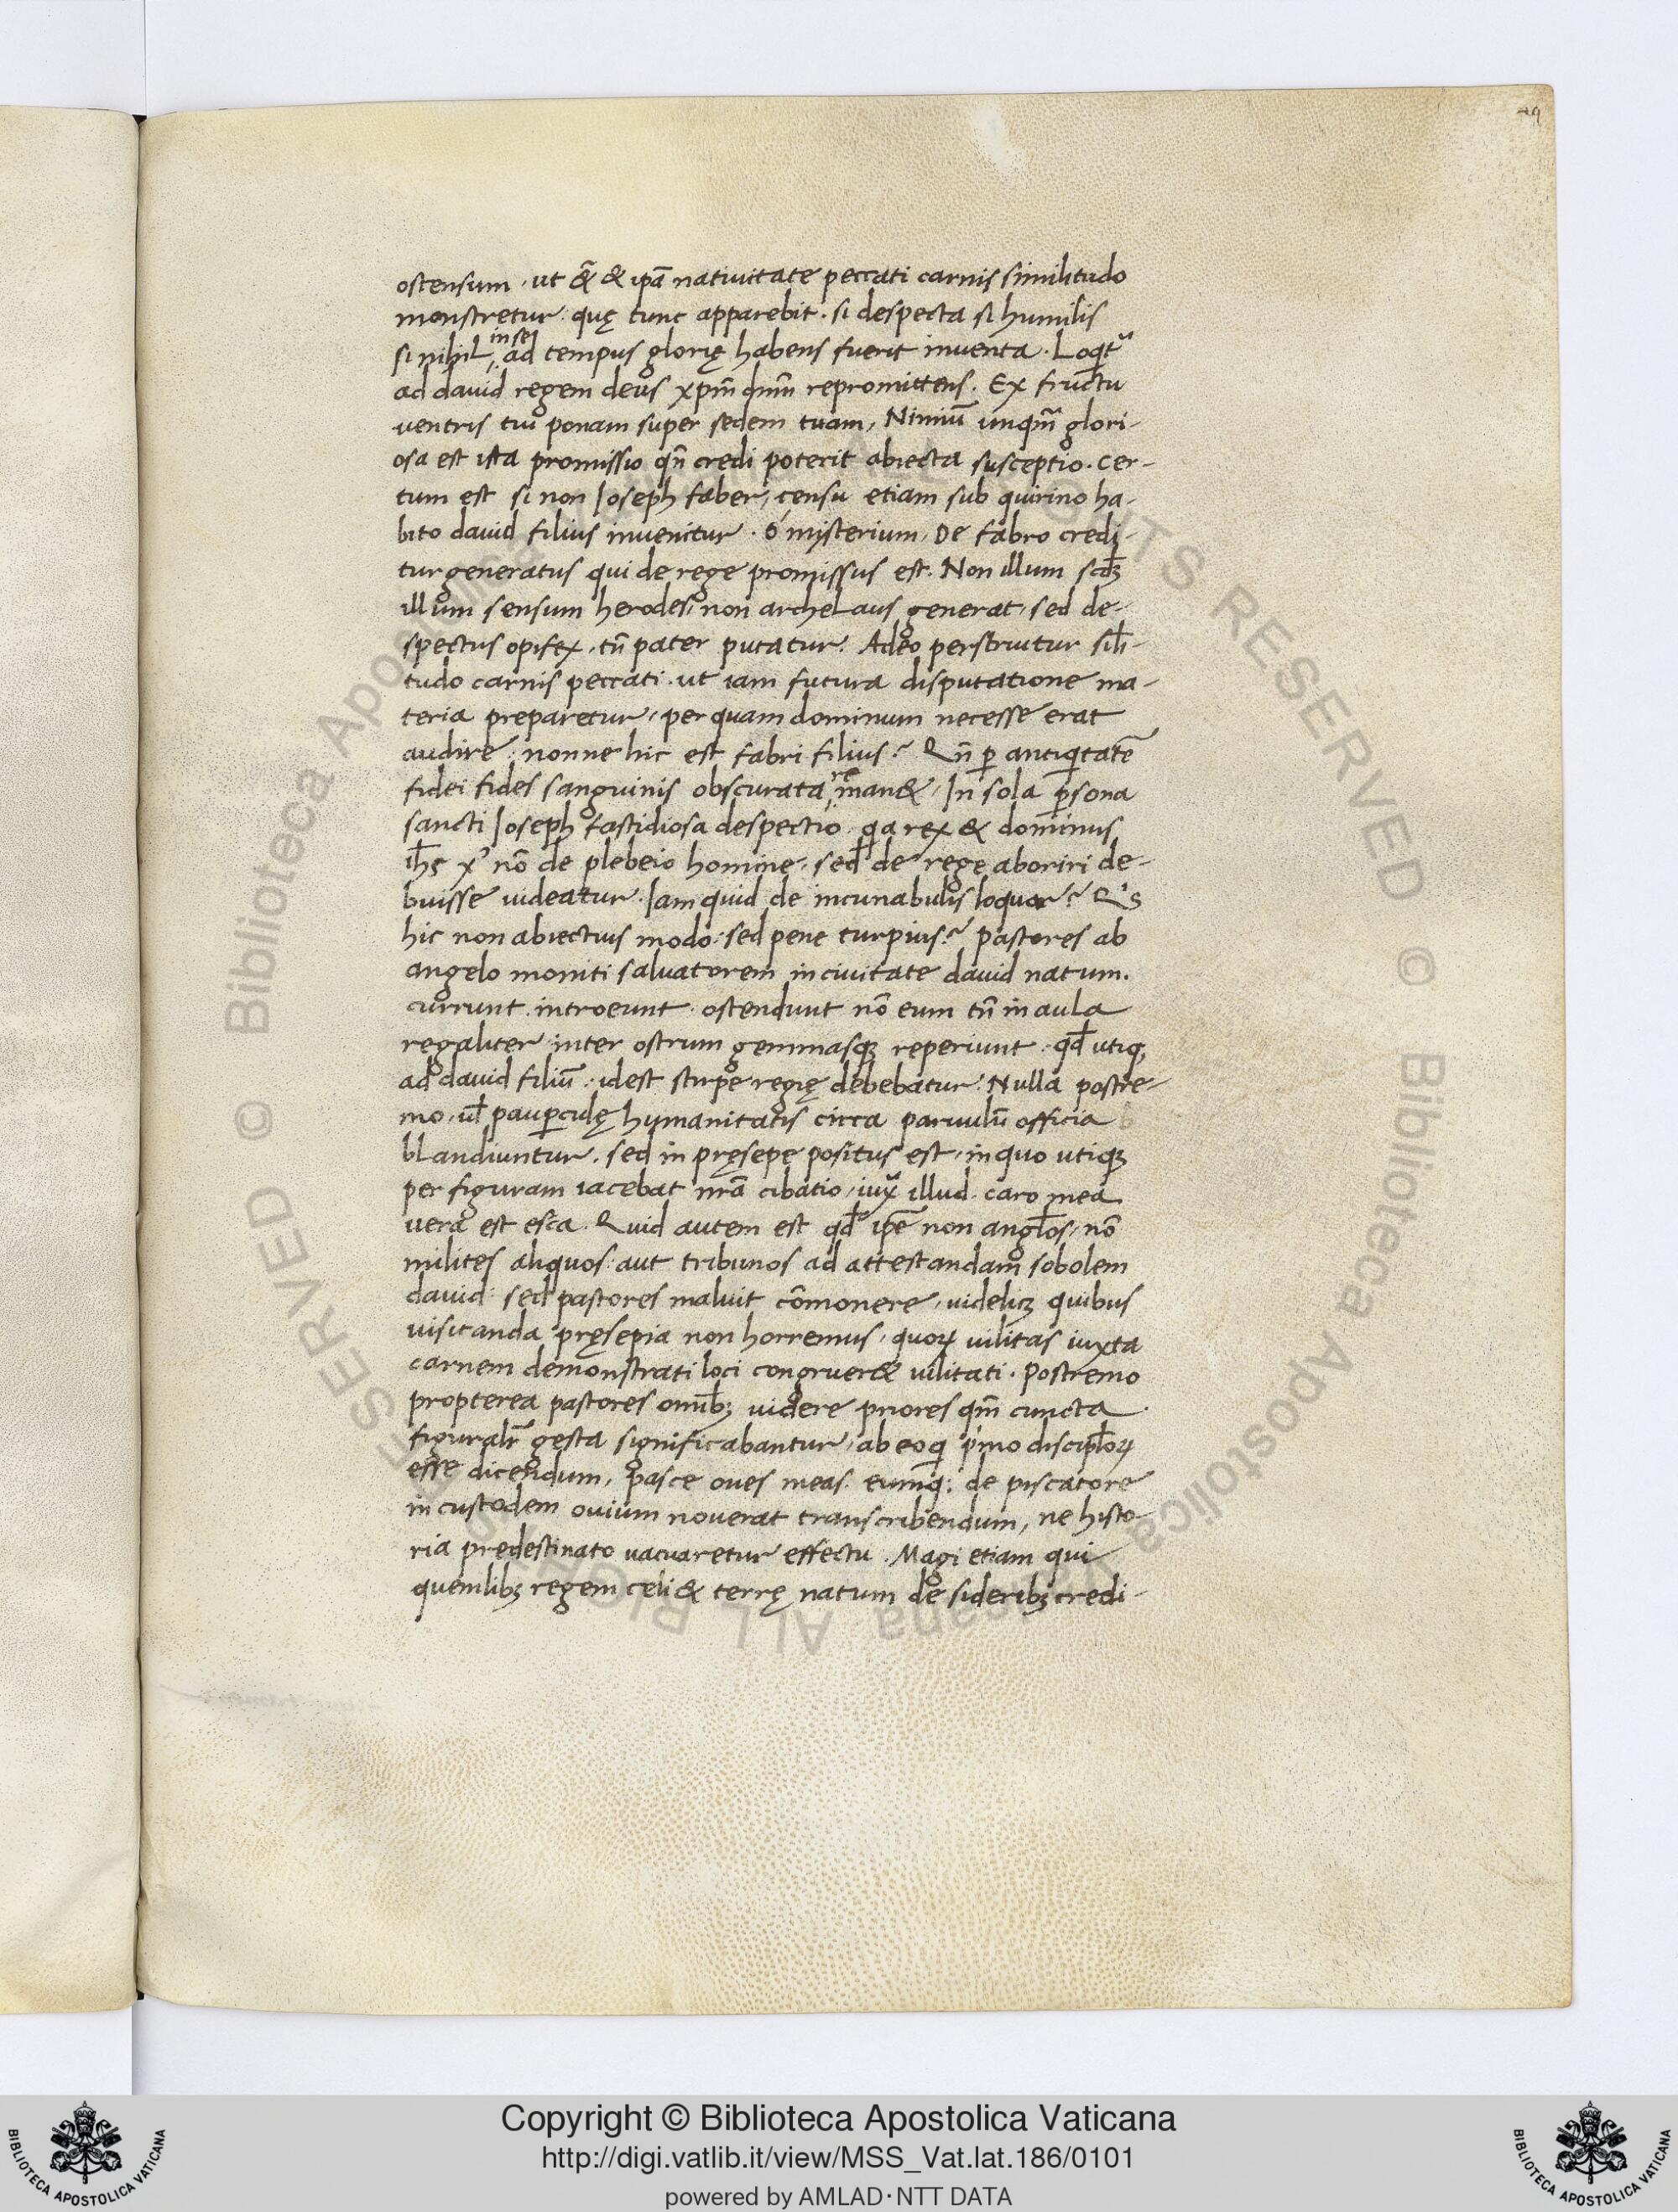 49
ostensum. ut & & ipā natiuitate peccati carnis similitudo
monstretur. quę tunc apparebit. si despecta si humilis
si nihil in se ad tempus glorię habens fuerit inventa. Loqt̃
ad david regem deus xp̄m dnm̄ repromittens. Ex fructu
ventris tui ponam super sedem tuam, Nimiū unqm̄ glori-
osa est ista promissio qn̄ credi poterit abiecta susceptio. Cer-
tum est si non Joseph faber, censu etiam sub quirino ha-
bito david filius invenitur. ó mysterium, De fabro credi-
tur generatus qui de rege promissus est. Non illum scdꝫ
illum sensum herodes, non archelaus generat, sed de-
spectus opifex, tn̄ pater putatur. Adeo perstruitur sil̄i-
tudo carnis peccati. ut iam futura disputatione ma-
teria preparetur, per quam dominum necesse erat
audire: nonne hic est fabri filius? Qn̄ ꝑ antiqitatē
fidei fides sanguinis obscurata re man&, In sola ꝑsona
sancti Joseph fastidiosa despectio. qa rex & dominus
ih̄s xꝰ nō de plebeio homine, sed de rege aboriri de-
buisse uideatur. Jam quid de incunabulis loquar? Qis
hic non abiectius modo: sed pene turpius? Pastores ab
angelo moniti salvatorem in civitate david natum.
currunt. introeunt. ostendunt nō eum tn̄ in aula
regaliter inter ostrum gemmasqꝫ reperiunt. qd̄ utiqꝫ
ad david filiū: idest stirpe regię debebatur. Nulla postre-
mo, ul̄ pauꝑculę hymanitatis circa paruulū officia
blandiuntur. sed in pręsepe positus est, in quo utiqꝫ
per figuram iacebat nrā cibatio, iux̄ illud. caro mea
vera est esca. Quid autem est qd̄ ipē non angl̄os, nō
milites aliquos: aut tribunos ad attestandam sobolem
david: sed pastores maluit cōmonere, videlicꝫ quibus
visitanda pręsepia non horremus, quoꝝ uilitas iuxta
carnem demonstrati loci congruer& uilitati. Postremo
propterea pastores omībꝫ uidere priores qm̄ cuncta
figuralr̄ gesta significabantur, ab eo q pimo discipl̄oꝝ
esse dicendum, pasce oves meas. eumqꝫ: de piscatore
in custodem ovium noverat transcribendum, ne histo-
ria predestinato vacuaretur effectu. Magi etiam qui
quemlibꝫ regem celi & terrę natum de sideribꝫ credi-
Copyright © Biblioteca Apostolica Vaticana
http://digi.vatlib.it/view/MSS_Vat.lat.186/0101
powered by AMLAD·NTT DATA